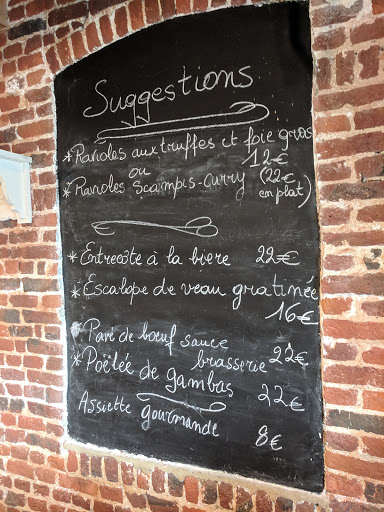 Suggestions
* Ravioles aux truffes et foie gras
ou 12€
* Ravioles Scampis-curry (22€
en plat)
* Entrecôte à la bière 22€
* Escalope de veau gratinée
16€
* Pavé de bœuf sauce
brasserie 22€
* Poëlée de gambas
22€
Assiette gourmande
8€